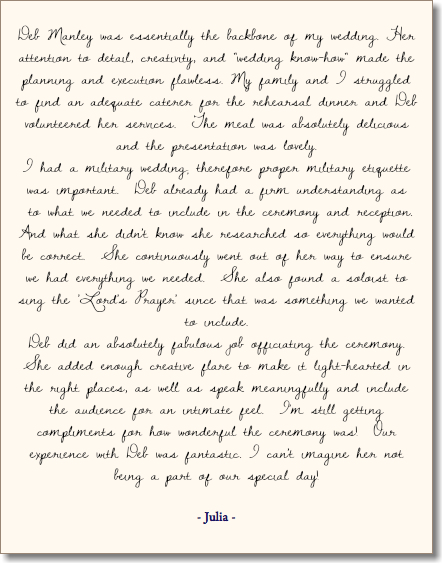 Deb Manley was essentially the backbone of my wedding. Her
attention to detail, creativity, and "wedding know-how" made the
planning and execution flawless. My family and I struggled
to find an adequate caterer for the rehearsal dinner and Deb
volunteered her services. The meal was absolutely delicious
and the presentation was lovely.
I had a military wedding, therefore proper military etiquette
was important. Deb already had a firm understanding as
to what we needed to include in the ceremony and reception.
And what she didn't know she researched so everything would
be correct. She continuously went out of her way to ensure
we had everything we needed. She also found a soloist to
sing the 'Lord's Prayer' since that was something we wanted
to include.
Deb did an absolutely fabulous job officiating the ceremony.
She added enough creative flare to make it light-hearted in
the right places, as well as speak meaningfully and include
the audience for an intimate feel. I'm still getting
compliments for how wonderful the ceremony was! Our
experience with Deb was fantastic. I can't imagine her not
being a part of our special day!
- Julia -